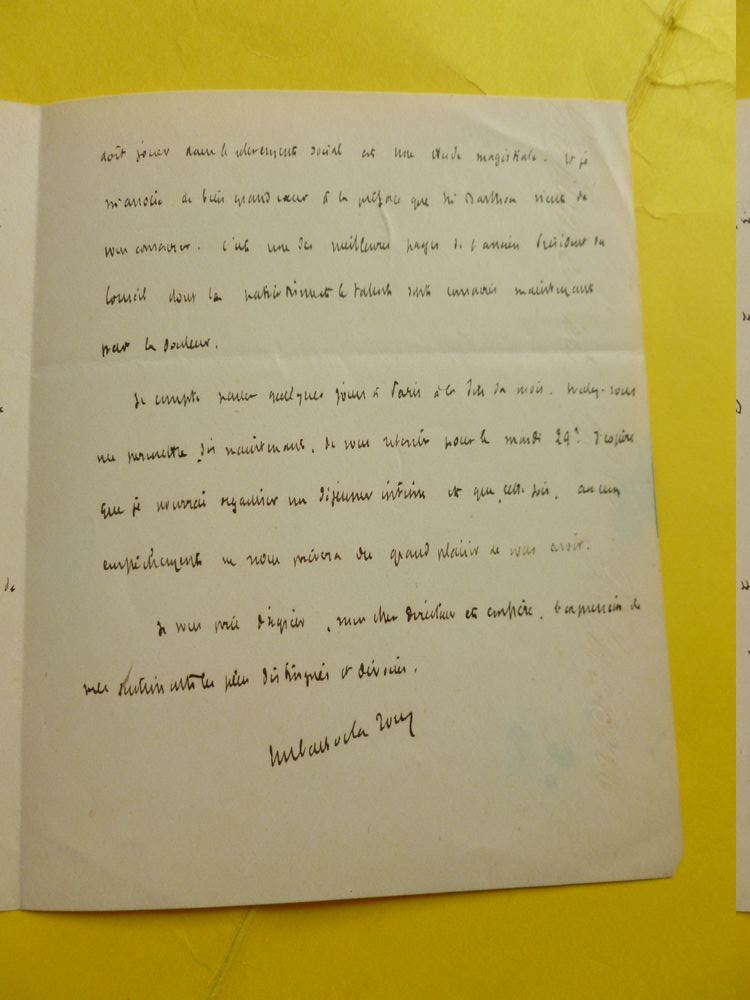 doit jouer dans le relèvement social est une étude magistrale. Et je
m'associe de bien grand cœur à la préface que M. Barthou vient de
vous consacrer. C'est une des meilleures pages de l'ancien Président du
Conseil dont le patriotisme et le talent sont consacrés maintenant
par la douleur.
Je compte passer quelques jours à Paris à la fin du mois. Voulez-vous
me permettre, dès maintenant, de vous retenir pour le mardi 29? J'espère
que je pourrai organiser un déjeuner intime et que, cette fois, aucun
empêchement ne nous privera du grand plaisir de vous avoir.
Je vous prie d'agréer, mon cher Directeur et confrère, l'expression de
mes sentiments les plus distingués et dévoués.
de